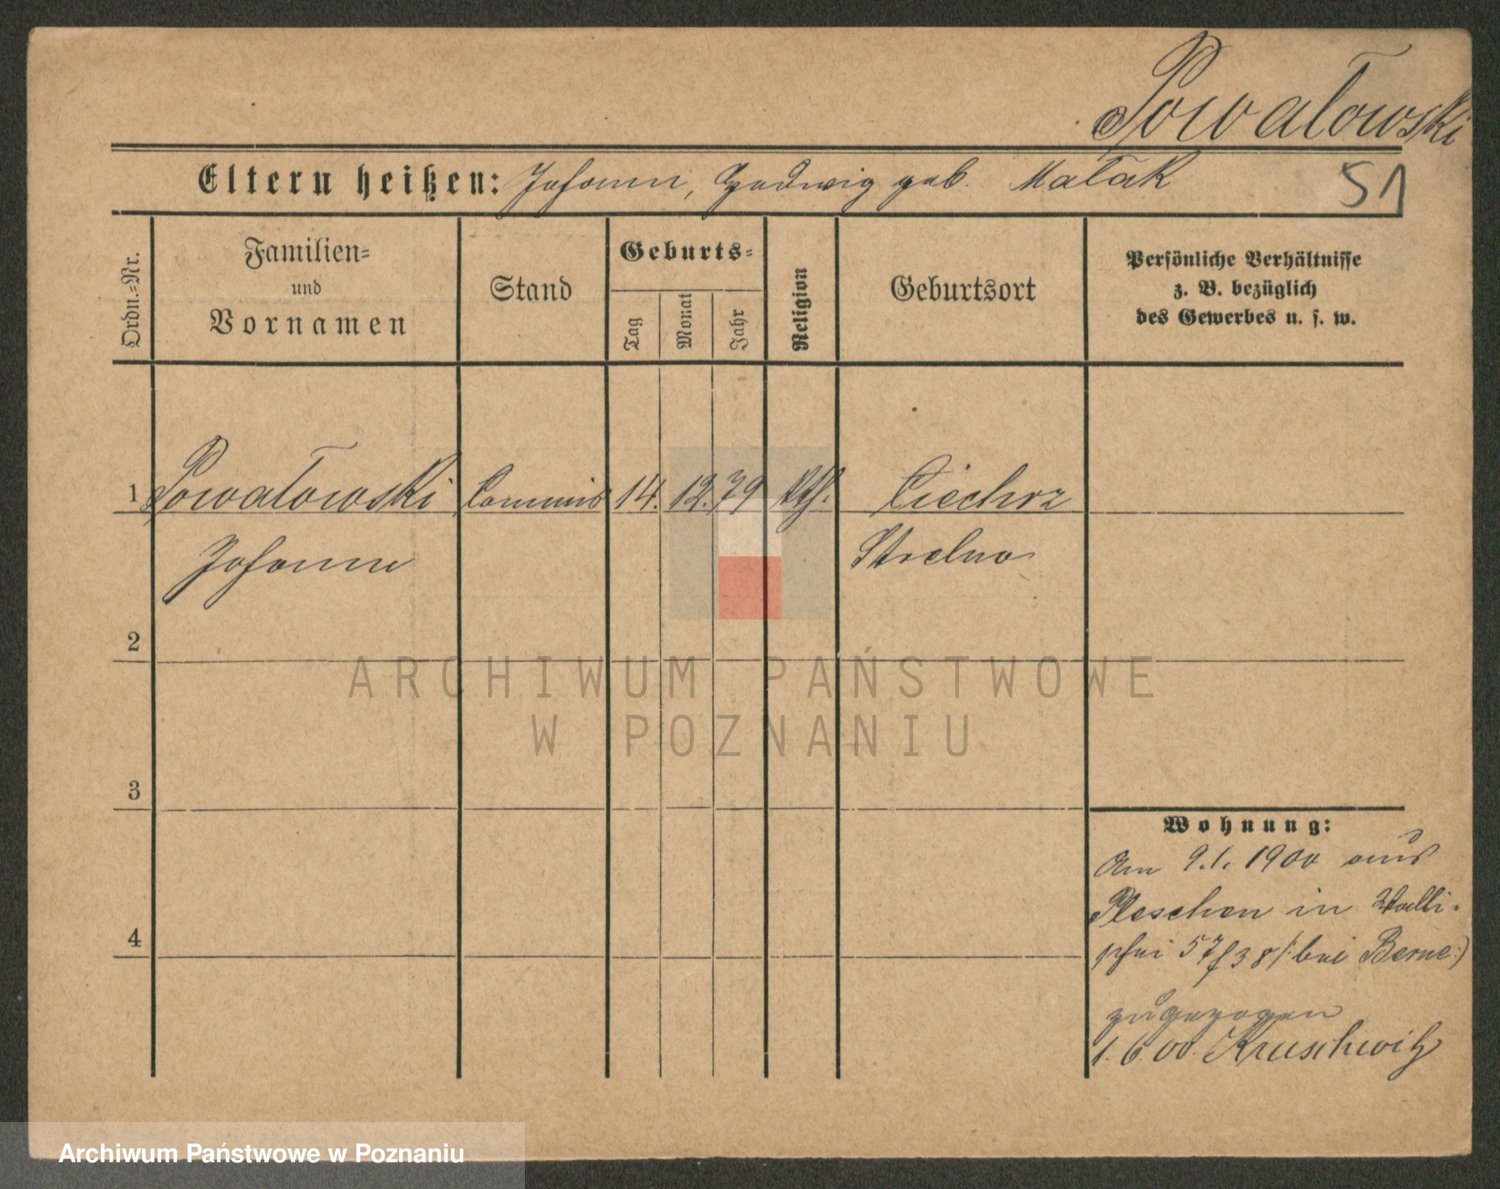 Powałowski
Eltern heißen: Johann, Hedwig geb. Matak
51
Ordn.=Nr.
Familien=
und
Vornamen
Stand
Geburts=
Tag
Monat
Jahr
Religion
Geburtsort
Persönliche Verhältnisse
z. B. bezüglich
des Gewerbes u. s. w.
1 Powałowski Commis 14. 12. 79 kth. Ciechrz
Johann Strelno
2
ARCHIWUM PAŃSTWOWE
W POZNANIU
3
Wohnung:
Am 9.1.1900 aus
Pleschen in Walli-
schei 57/38 /: bei Berne :)
4
zugezogen
1.6.00. Kruschwitz
Archiwum Państwowe w Poznaniu